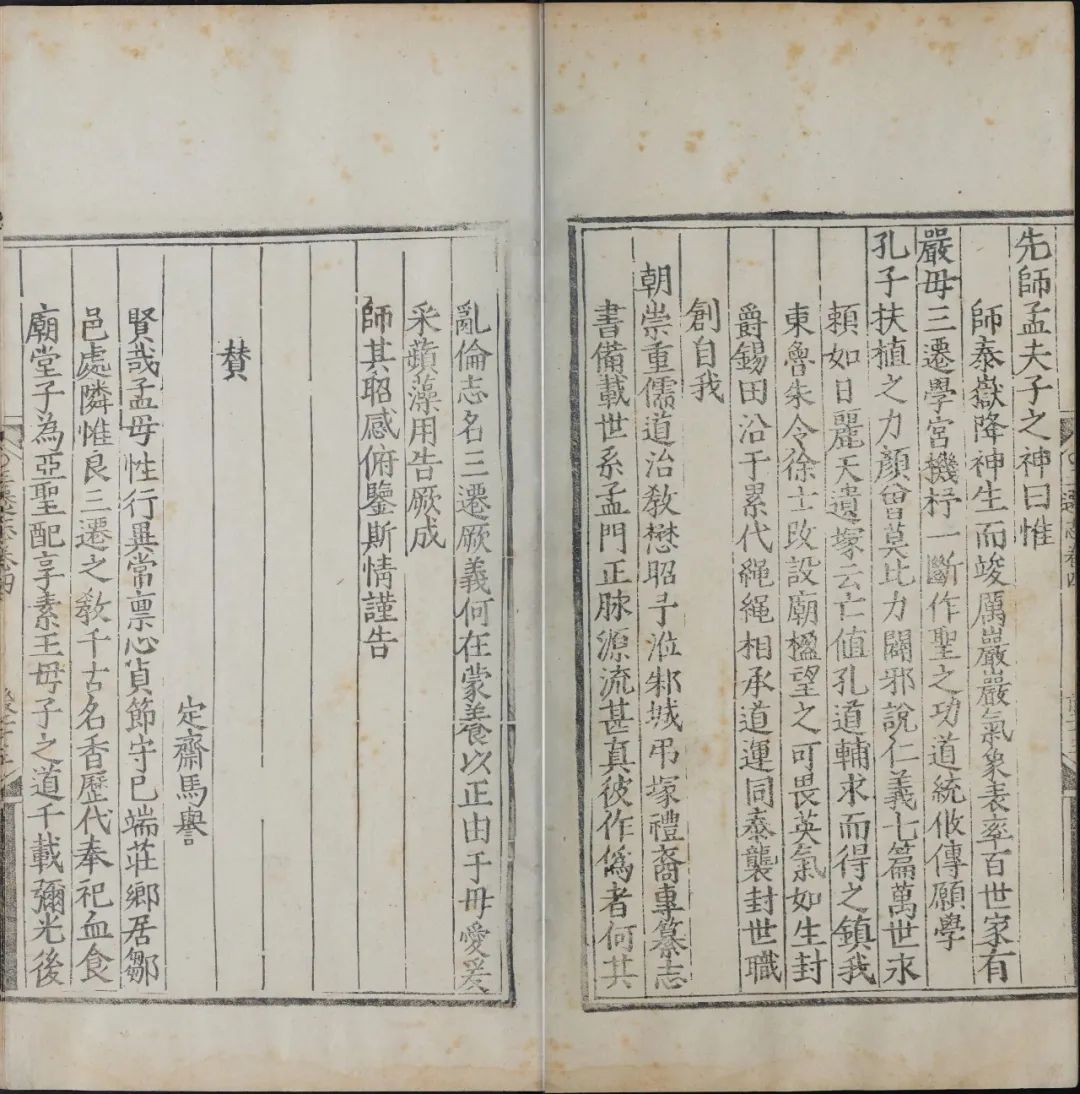 先師孟夫子之神曰惟
師泰嶽降神生而竣厲巖巖氣象表率百世家有
嚴母三遷學宮機杼一斷作聖之功道統攸傳願學
孔子扶植之力顏曾莫比力闢邪說仁義七篇萬世永
賴如日麗天遺塚云亡值孔道輔求而得之鎮我
東魯朱令徐士改設廟楹望之可畏英氣如生封
爵錫田沿于累代繩繩相承道運同泰襲封世職
創自我
朝崇重儒道治教懋昭予涖邾城弔塚禮裔專纂志
書備載世系孟門正脉源流甚真彼作偽者何其
亂倫志名三遷厥義何在蒙養以正由于毋愛爰
采蘋藻用告厥成
師其昭感俯鑒斯情謹告
贊
定齋馬譽
賢哉孟毋性行異常稟心貞節守已端莊鄉居鄒
邑處隣惟良三遷之教千古名香歷代奉祀血食
廟堂子為亞聖配享素王毋子之道千載彌光後
三遷志卷四